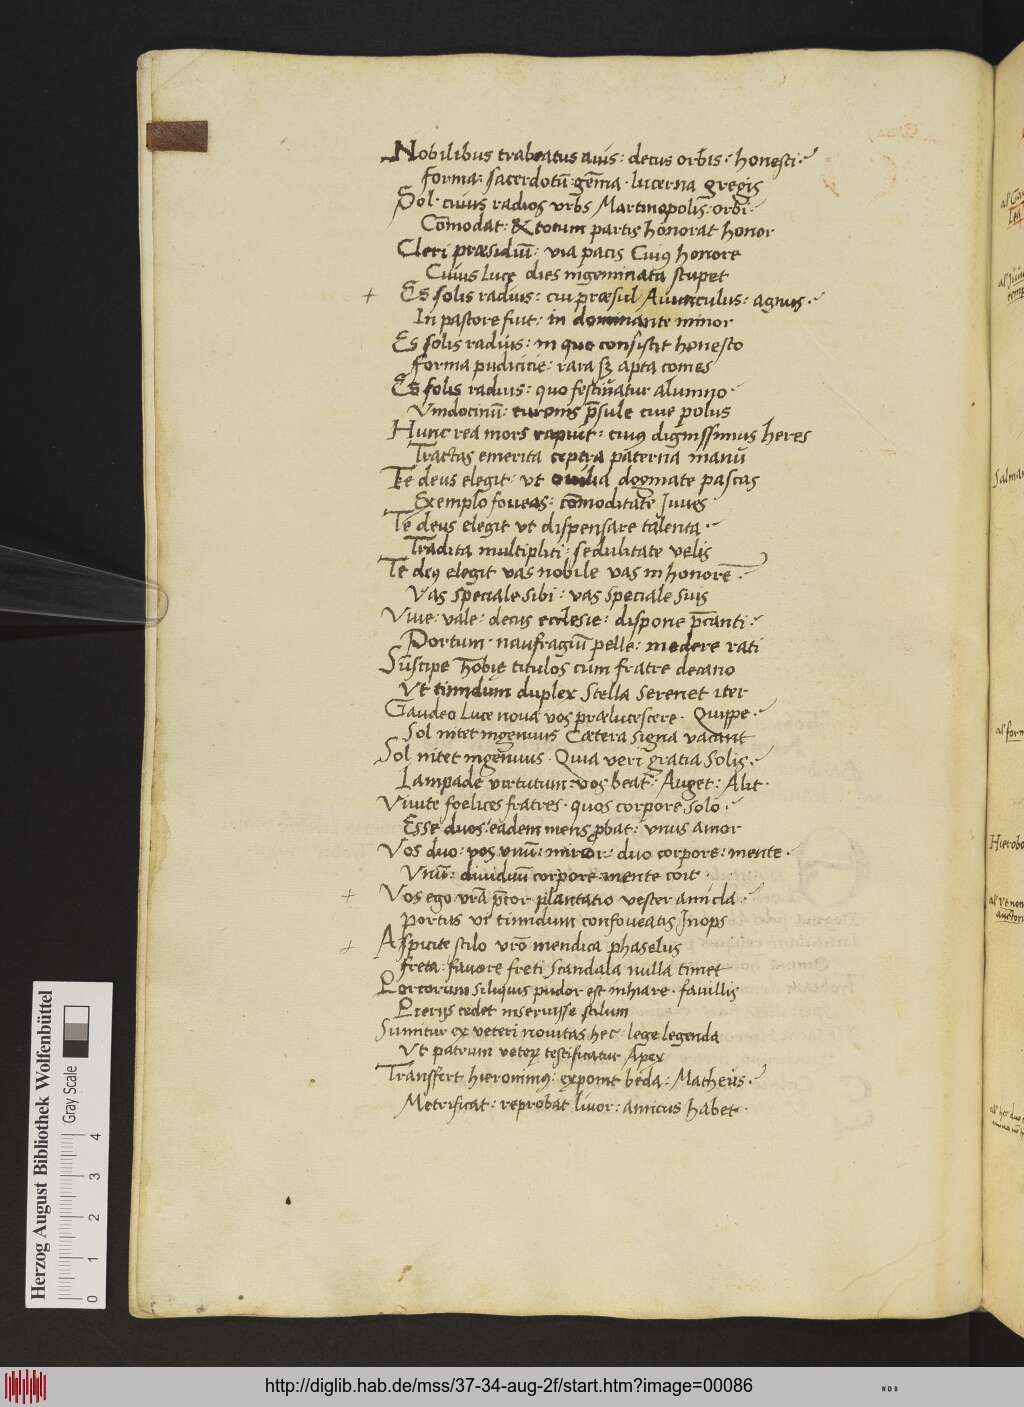 Nobilibus trabeatus auis: decus orbis · honesti ·
forma: sacerdotū: gēma · lucerna gregis
Sol · cuius radios urbs Martinopolis: orbi ·
Cōmodat: & totum partis honorat honor
Cleri præsidiū: uia pacis Cuiꝰ honore
Cuius Luce dies ingeminata stupet
+ Es solis radius: cui præsul Auunculus: agnus ·
In pastore fuit: in dominante minor
Es solis radius: in quo consistit honesto
forma pudicicie: rara sꝫ apta comes
Es solis radius: quo festiuatur alumno ·
Vindocinū: turonis p̄sule ciue polus
Hunc rea mors rapuit: cuiꝰ dignissimus heres
Tractas emerita ceptra paterna manū
Te deus elegit · ut ouilia dogmate pascas
Exemplo foueas: cōmoditate Iuues
Te deus elegit ut dispensare talenta ·
Tradita multiplici: sedulitate uelis
Te deꝰ elegit uas nobile uas in honorē ·
Vas speciale sibi: uas speciale suis
Viue: uale: decus ecclesie: dispone p̄canti ·
Portum · naufragiū pelle: medere rati
Suscipe Thobię titulos cum fratre decano
Vt timidum duplex Stella Serenet iter
Gaudeo Luce noua uos prælucescere · Quippe ·
Sol nitet ingenuus Cætera signa uacant
Sol nitet ingenuus · Quia ueri gratia Solis ·
Lampade uirtutum: uos beat: Auget: Alit ·
Viuite foelices fratres · quos corpore solo ·
Esse duos: eadem mens ꝓbat: unus amor
Vos duo: uos unū: miror: duo corpore: mente ·
Vnū: diuiduū corpore mente coit ·
+ Vos ego urā p̄cor plantatio uester amicla ·
Portus ut timidum confoueatis Inops
+ Aspicite stilo urō mendica phaselus
freta: fauore freti Scandala nulla timet
Porcorum siliquis pudor est inhiare · fauillis
Pierijs tedet inseruisse stilum
Sumitur ex ueteri nouitas hec · lege legenda
Vt patrum ueteꝝ testificatur Apex
Transfert hieronimꝰ: exponit beda: Matheus ·
Metrificat: reprobat liuor: amicus habet ·
Salma
Hierobo
Herzog August Bibliothek Wolfenbüttel
Gray Scale
0 1 2 3 4
http://diglib.hab.de/mss/37-34-aug-2f/start.htm?image=00086